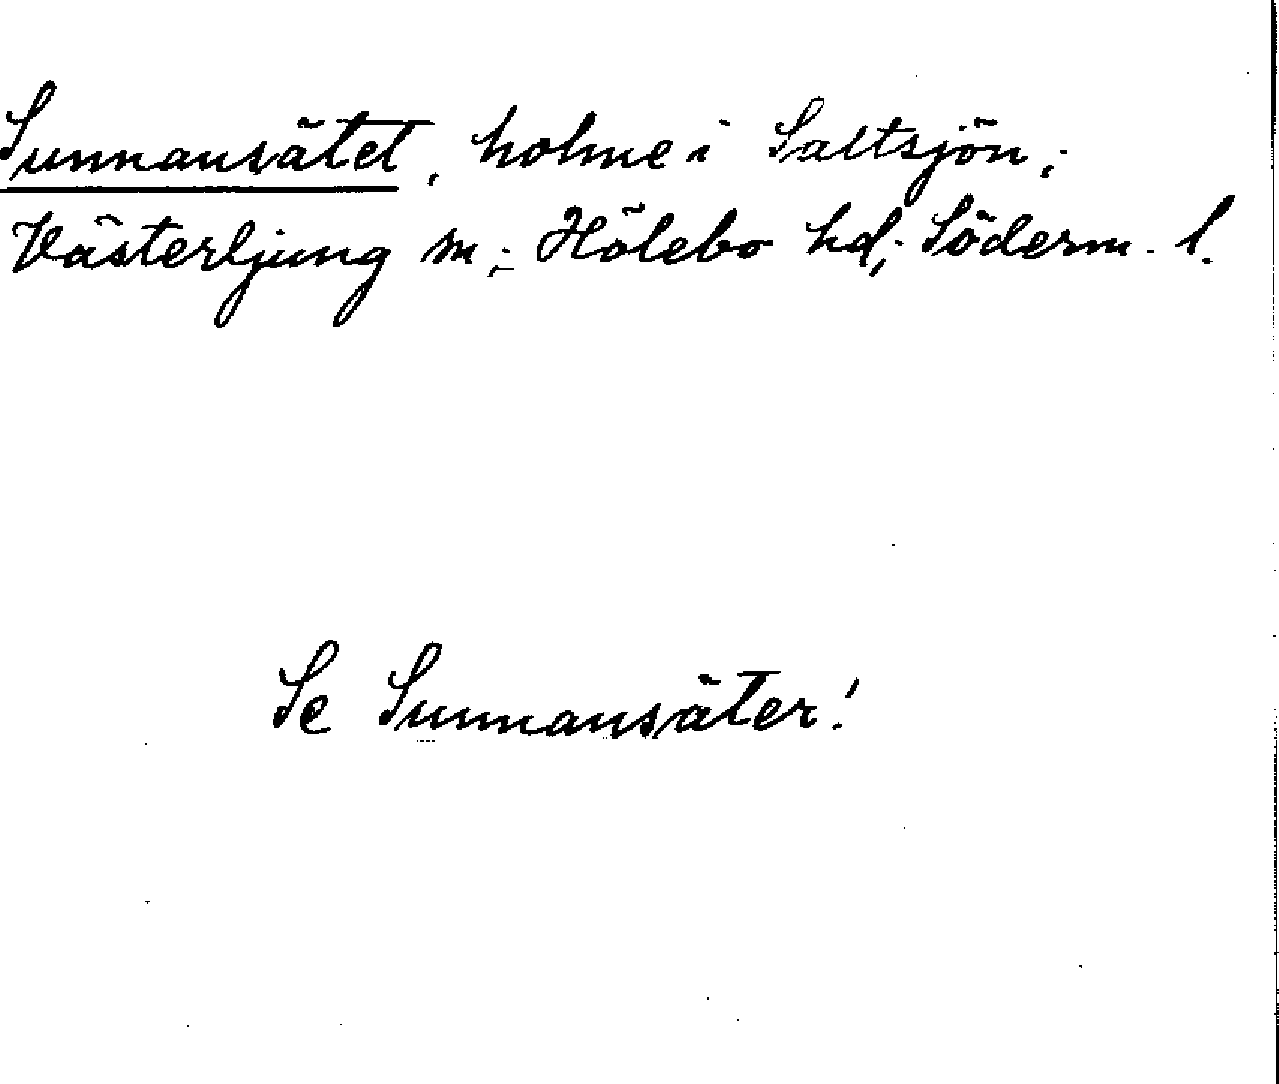 Sunnansätet, holme i Saltsjön;
Västerljung sn; Hölebo hd; Söderm. l.
Se Sunnansäter!